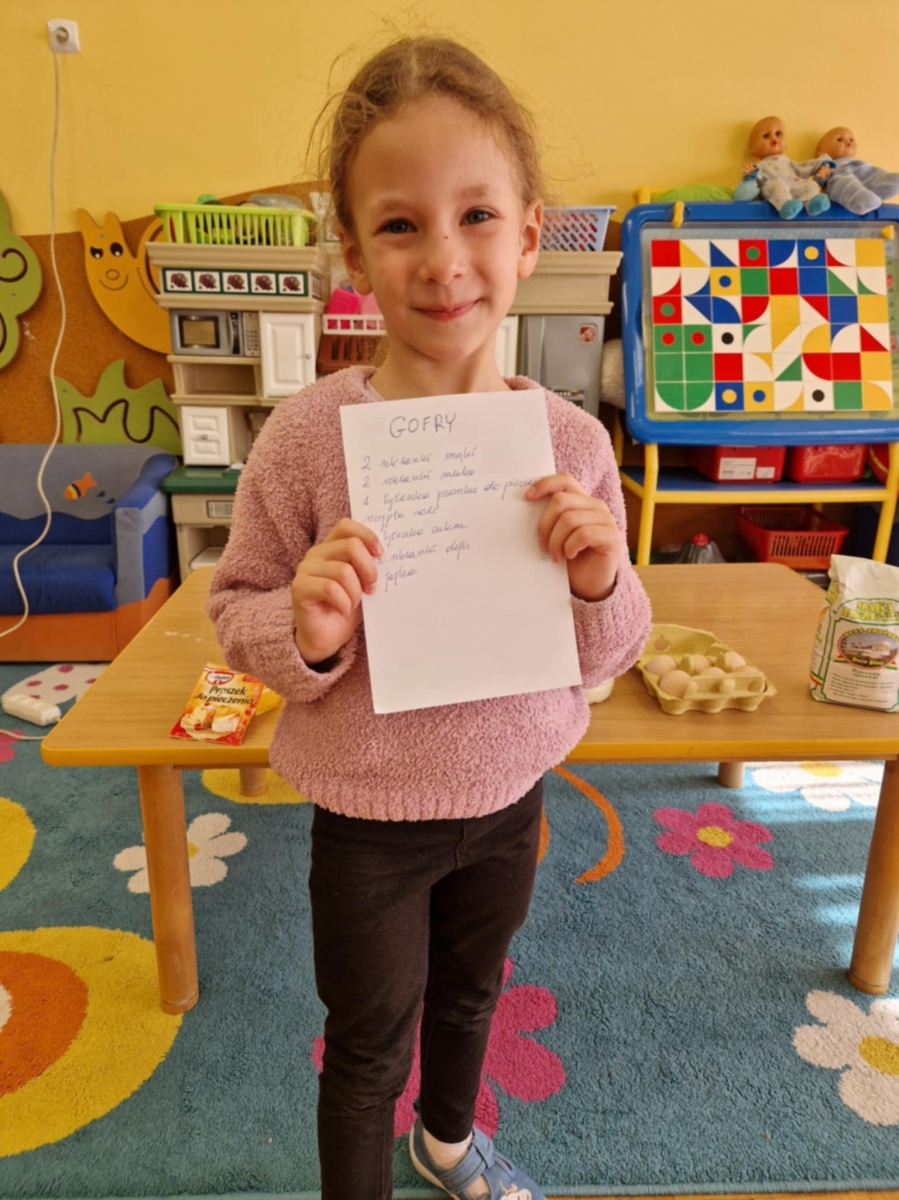 GOFRY
2 szklanki mąki
2 szklanki mleka
1 łyżeczka proszku do piecze
szczypta soli
łyżeczka cukru
szklanki oleju
jajka
Proszek
do pieczenia